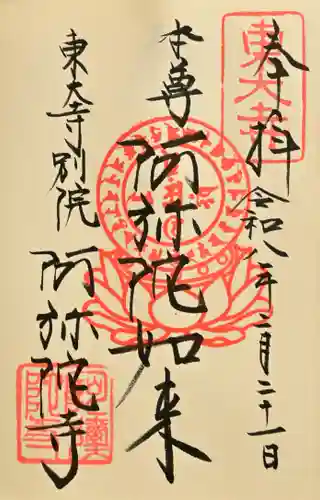 奉拝 令和八年二月二十一日
東大寺
本尊
阿弥陀如来
東大寺別院
阿弥陀寺